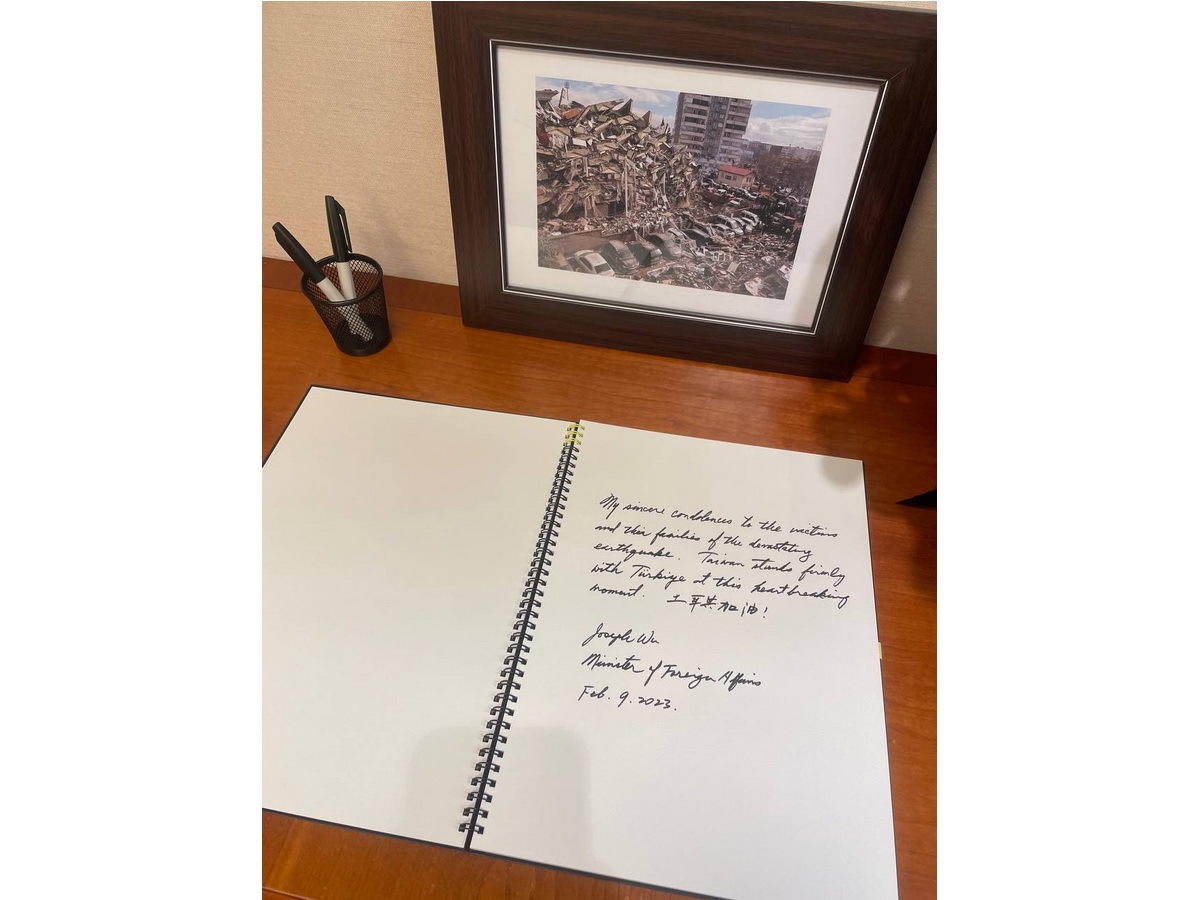 My sincere condolences to the victims
and their families of the devastating
earthquake. Taiwan stands firmly
with Türkiye at this heartbreaking
moment. 土耳其加油!
Joseph Wu
Minister of Foreign Affairs
Feb. 9. 2023.